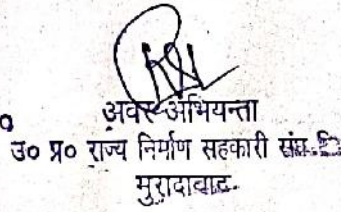 अवर अभियन्ता
उ० प्र० राज्य निर्माण सहकारी संघ लि०
मुरादाबाद